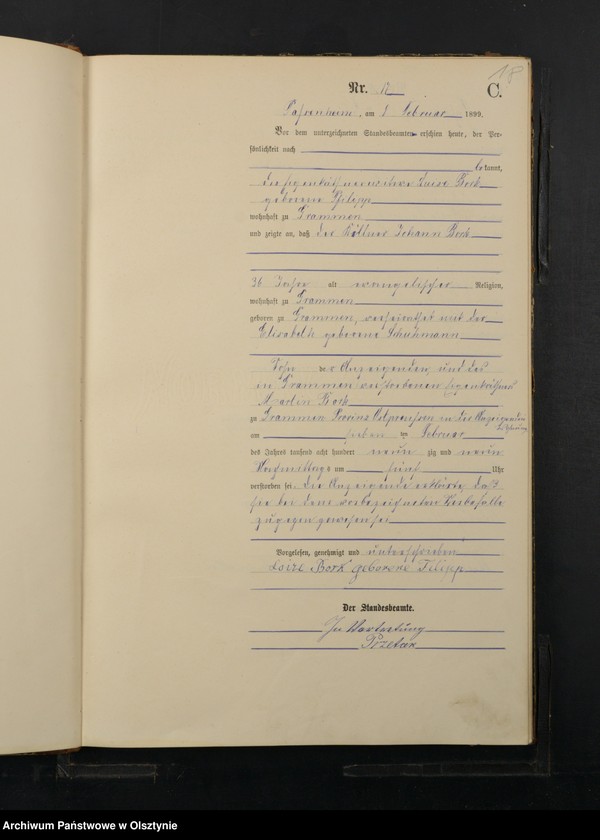 18
Nr. 12
C.
Passenheim, am 8 Februar 1899.
Vor dem unterzeichneten Standesbeamten erschien heute, der Per-
sönlichkeit nach
bekannt,
die Eigenkäthnerwitwe Luise Bork
geborene Philipp
wohnhaft zu Grammen
und zeigte an, daß der Köllner Johann Bork
36 Jahre alt evangelischer Religion,
wohnhaft zu Grammen
geboren zu Grammen, verheirathet mit der
Elisabeth geborene Schuhmann
Sohn der Anzeigenden und des
in Grammen verstorbenen Eigenkäthners
Martin Bork
zu Grammen Provinz Ostpreußen in der Anzeigenden
Behausung
am sieben ten Februar
des Jahres tausend acht hundert neunzig und neun
Nachmittags um fünf Uhr
verstorben sei. Die Anzeigende erklärte, daß
sie bei dem vorbezeichneten Sterbefalle
zugegen gewesen sei
Vorgelesen, genehmigt und unterschrieben
Loize Bork geborene Filipp
Der Standesbeamte.
In Vertretung
Archiwum Państwowe w Olsztynie